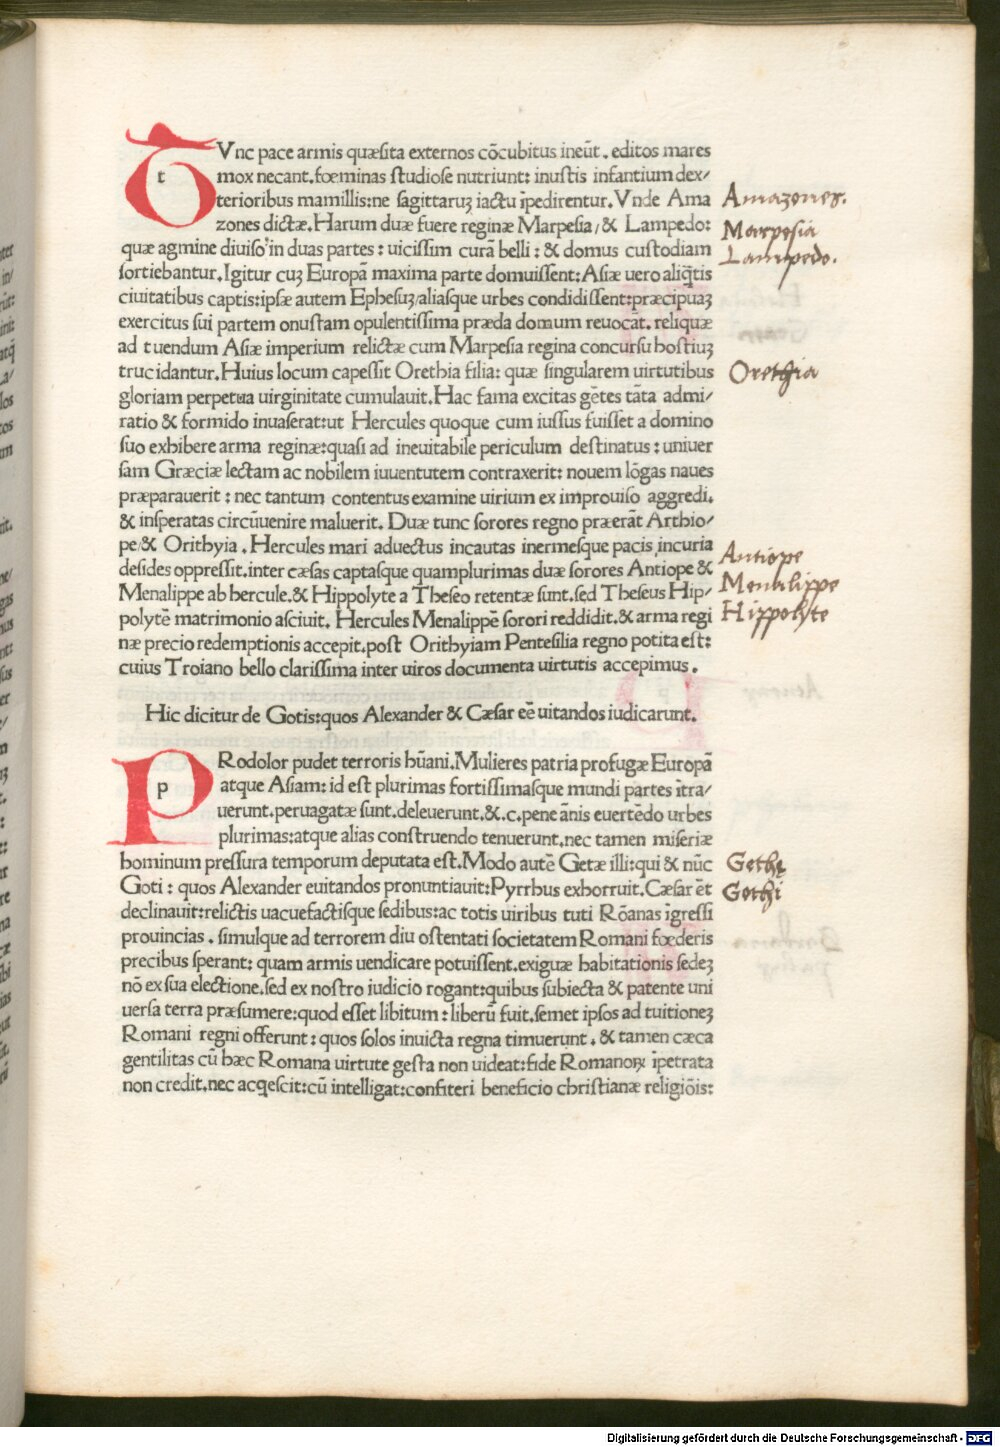 TVnc pace armis quæsita externos cōcubitus ineūt. editos mares
mox necant. fœminas studiose nutriunt: inustis infantium dex/
terioribus mamillis: ne sagittaruꝫ iactu īpedirentur. Vnde Ama
zones dictæ. Harum duæ fuere reginæ Marpesia/ & Lampedo:
quæ agmine diuiso in duas partes: uicissim curā belli: & domus custodiam
sortiebantur. Igitur cuꝫ Europā maxima parte domuissent: Asiæ uero aliq̄tis
ciuitatibus captis: ipsæ autem Ephesuꝫ/aliasque urbes condidissent: præcipuaꝫ
exercitus sui partem onustam opulentissima præda domum reuocāt. reliquæ
ad tuendum Asiæ imperium relictæ cum Marpesia regina concursu hostiuꝫ
trucidantur. Huius locum capessit Orethia filia: quæ singularem uirtutibus
gloriam perpetua uirginitate cumulauit. Hac fama excitas gētes tāta admi/
ratio & formido inuaserat: ut Hercules quoque cum iussus fuisset a domino
suo exhibere arma reginæ: quasi ad ineuitabile periculum destinatus: uniuer
sam Græciæ lectam ac nobilem iuuentutem contraxerit: nouem lōgas naues
præparauerit: nec tantum contentus examine uirium ex improuiso aggredi.
& insperatas circūuenire maluerit. Duæ tunc sorores regno præerāt Arthio/
pe/& Orithyia. Hercules mari aduectus incautas inermesque pacis incuria
desides oppressit. inter cæsas captasque quamplurimas duæ sorores Antiope &
Menalippe ab hercule. & Hippolyte a Theseo retentæ sunt. sed Theseus Hip/
polytē matrimonio asciuit. Hercules Menalippē sorori reddidit. & arma regi
næ precio redemptionis accepit. post Orithyiam Pentesilia regno potita est:
cuius Troiano bello clarissima inter uiros documenta uirtutis accepimus.
Hic dicitur de Gotis: quos Alexander & Cæsar eē uitandos iudicarunt.
PRodolor pudet terroris hūani. Mulieres patria profugæ Europā
atque Asiam: id est plurimas fortissimasque mundi partes ītra/
uerunt. peruagatæ sunt. deleuerunt. &.c. pene ānis euertēdo urbes
plurimas: atque alias construendo tenuerunt. nec tamen miseriæ
hominum pressura temporum deputata est. Modo autē Getæ illi: qui & nūc
Goti: quos Alexander euitandos pronuntiauit: Pyrrhus exhorruit. Cæsar ēt
declinauit: relictis uacuefactisque sedibus: ac totis uiribus tuti Rōanas īgressi
prouincias. simulque ad terrorem diu ostentati societatem Romani fœderis
precibus sperant: quam armis uendicare potuissent. exiguæ habitationis sedeꝫ
nō ex sua electione. sed ex nostro iudicio rogant: quibus subiecta & patente uni
uersa terra præsumere: quod esset libitum: liberū fuit. semet ipsos ad tuitioneꝫ
Romani regni offerunt: quos solos inuicta regna timuerunt. & tamen cæca
gentilitas cū hæc Romana virtute gesta non uideat: fide Romanoꝝ īpetrata
non credit. nec acq̄escit: cū intelligat: confiteri beneficio christianæ religiōis:
Amazones.
Marpesia
Lampedo.
Orethia
Antiope
Menalippe
Hippolyte
Gethę
Gothi
Digitalisierung gefördert durch die Deutsche Forschungsgemeinschaft - DFG